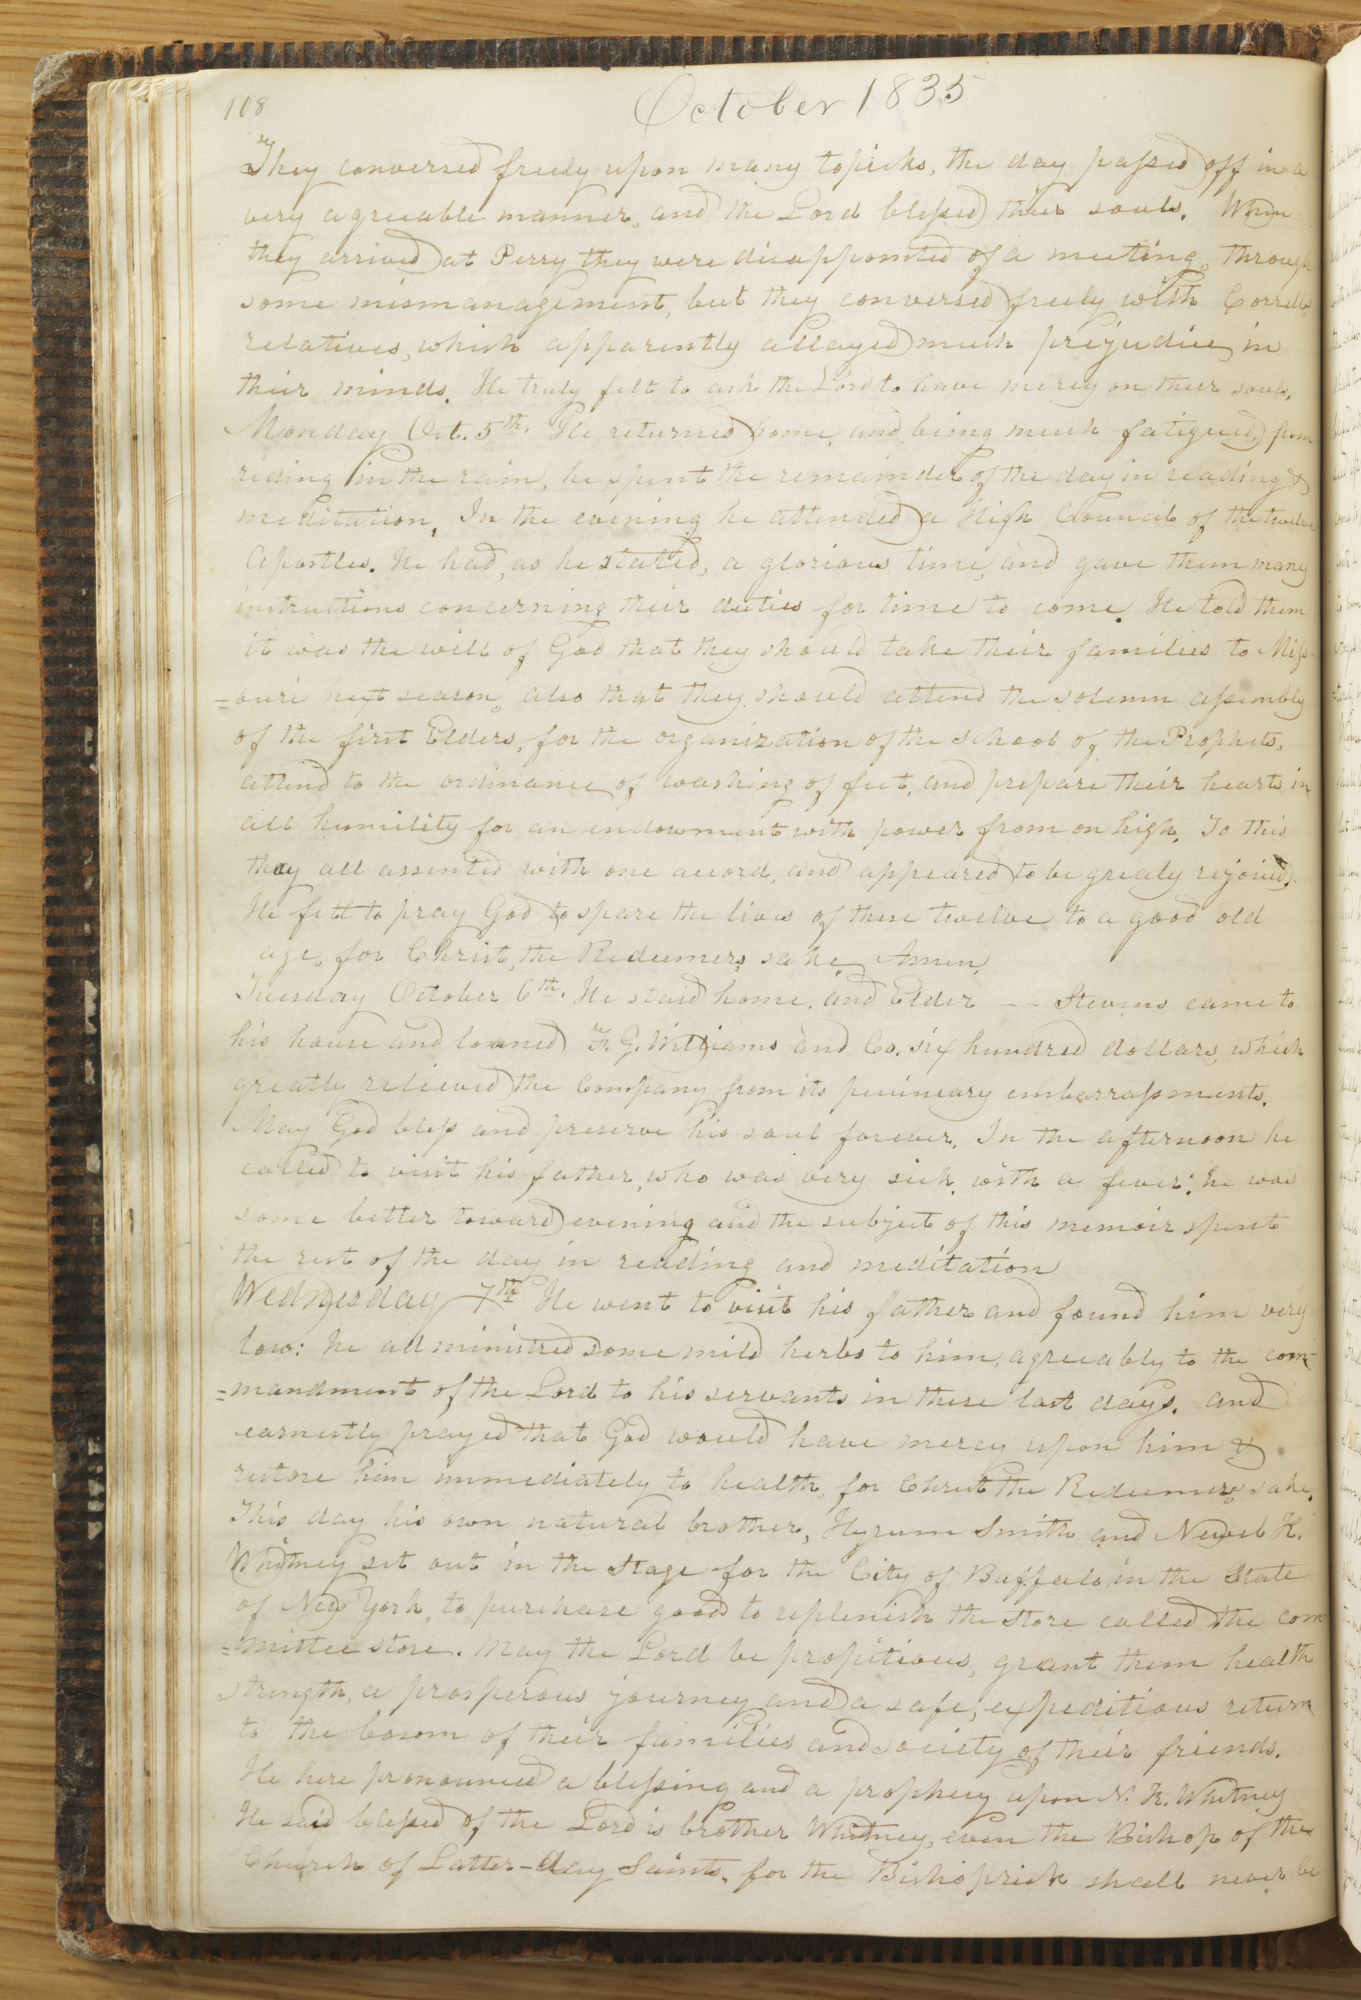 108
October 1835
They conversed freely upon many topicks, the day passed off in a
very agreeable manner, and the Lord blessed their souls. When
they arrived at Perry they were disappointed of a meeting, through
some mismanagement, but they conversed freely with Corrells
relatives, which apparently allayed much prejudice, in
their minds. He truly felt to ask the Lord to have mercy on their souls.
Monday Oct. 5th. He returned home, and being much fatigued, from
riding in the rain, he spent the remainder of the day in reading &
meditation. In the evening he attended a High Council of the twelve
Apostles. He had, as he stated, a glorious time, and gave them many
instructions concerning their duties for time to come. He told them
it was the will of God that they should take their families to Miss-
=ouri next season, also that they should attend the solemn assembly
of the first Elders, for the organization of the school of the Prophets,
attend to the ordinance of washing of feet, and prepare their hearts in
all humility for an endowment with power from on high. To this
they all assented with one accord, and appeared to be grealy rejoiced.
He felt to pray God to spare the lives of these twelve to a good old
age, for Christ, the Redeemers sake, Amen.
Tuesday October 6th. He staid home, and Elder — — Stevens came to
his house and loaned F. G. Williams and Co. six hundred dollars, which
greatly relieved the Company from its pecuniary embarrassments.
May God bless and preserve his soul forever. In the afternoon he
called to visit his father, who was very sick, with a fever: he was
some better toward evening and the subject of this memoir spent
the rest of the day in reading and meditation
Wednesday 7th He went to visit his father and found him very
low: he administred some mild herbs to him, agreeably to the com-
=mandment of the Lord to his servants in these last days. and
earnestly prayed that God would have mercy upon him &
restore him immediately to health, for Christ the Redeemers sake.
This day his own natural brother, Hyrum Smith and Newel K.
Whitney set out in the stage for the City of Buffalo, in the State
of New York, to purchase goods to replenish the store called the com-
=mittee store. May the Lord be propitious, grant them health
strength, a prosperous journey and a safe, expeditious return
to the bosom of their families and society of their friends.
He here pronounced a blessing and a prophecy upon N. K. Whitney
He said blessed of the Lord is brother Whitney, even the Bishop of the
Church of Latter-day Saints, for the Bishoprick shall never be